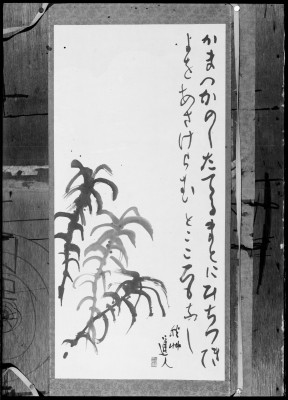 かまつかのしたてるまとにひちつき
よをあさけらむとこころもなし
秋艸道人